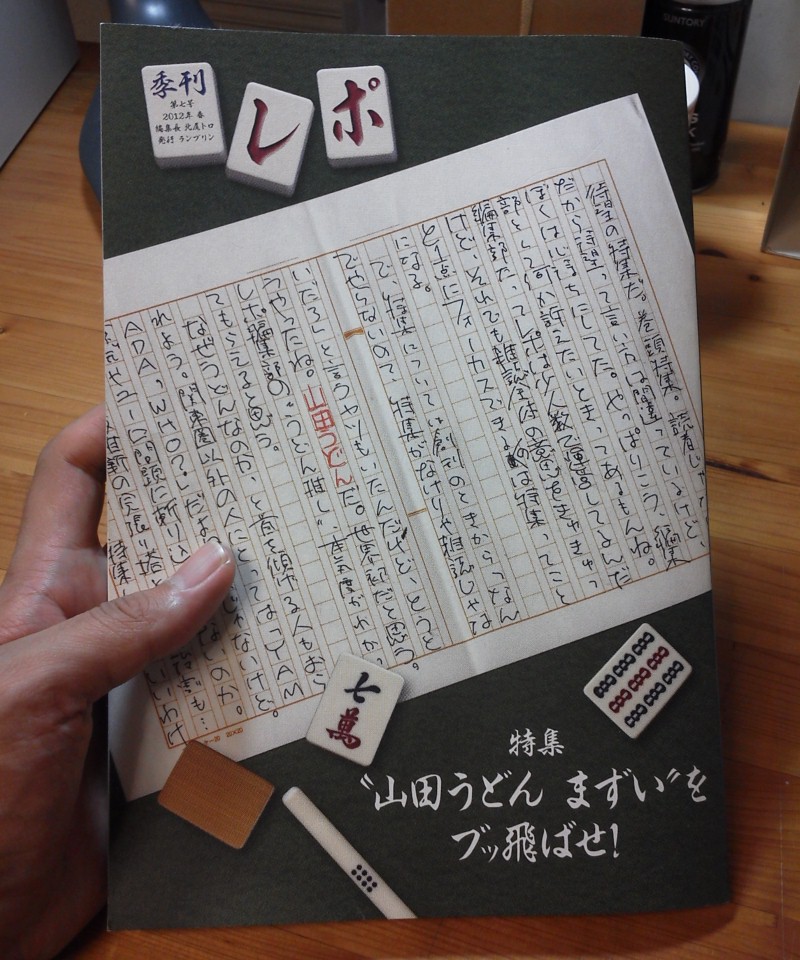 季刊
第七号
2012年 春
編集長 北尾トロ
発行 ランブリン
レポ
待望の特集だ。巻頭特集。読者じゃ
だから待望って言い方は間違っているけど、
ぼくは心待ちにしてた。やっぱりこう、編集
部として何か訴えたいときってあるもんね。
編集部たってレポは少人数で運営してるんだ
けど、それでも雑誌全体の意思をきゅきゅっ
と1点にフォーカスできるのは特集ってこと
になる。
で、特集については創刊のときから「なん
でやらないので、特集がなけりゃ雑誌じゃな
いだろ」と言うヤツもいたんだけど、とうと
うやったね。山田うどんだ。世界初だと思う。
した。編集部の“うどん推し”本気度がわかっ
てもらえると思う。
なぜうどんなのか、と首を傾げる人もおら
れよう。関東圏以外の人にとっては「YAM
ADA,WHO?」だ じゃないけど。
問題に斬り込 なしのか。
特集
七萬
SUNTORY
特集
“山田うどん まずい”を
ブッ飛ばせ!